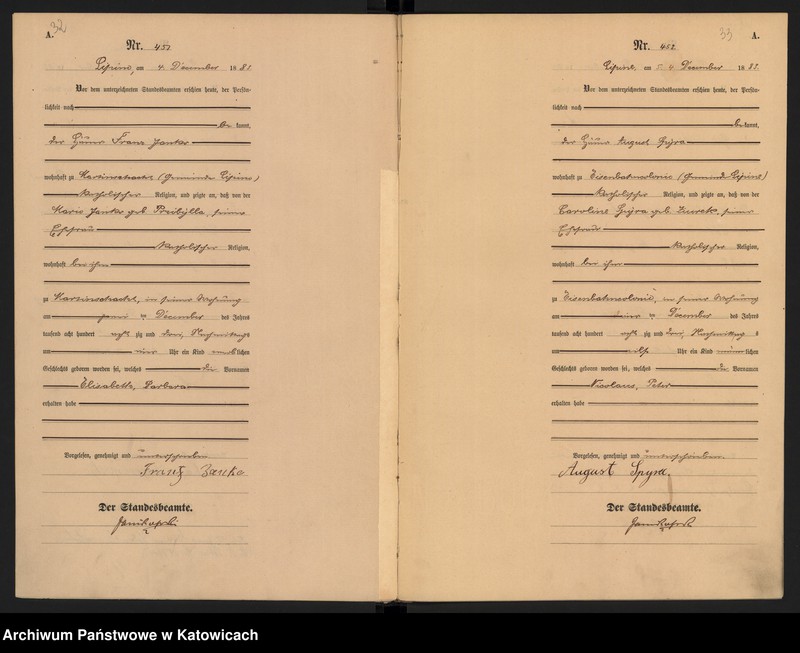 32
A.
Nr. 451
Lipine, am 4. December 1881.
Vor dem unterzeichneten Standesbeamten erschien heute, der Persön-
lichkeit nach
be kannt,
der Franz Janko
wohnhaft zu (Gemeinde Lipine)
katholischer Religion, und zeigte an, daß von der
Marie Janko geb. Preibylla, seiner
Ehefrau
katholischer Religion,
wohnhaft bei ihm
zu in seiner Wohnung
am December des Jahres
tausend acht hundert acht zig und drei, Nachmittags
um vier Uhr ein Kind weiblichen
Geschlechts geboren worden sei, welches die Vornamen
Elisabeth, Barbara
erhalten habe
Vorgelesen, genehmigt und unterschrieben
Franz Janko
Der Standesbeamte.
33
A.
Nr. 452
Lipine, am December 1881.
Vor dem unterzeichneten Standesbeamten erschien heute, der Persön-
lichkeit nach
be kannt,
der August Spyra
wohnhaft zu Eisenbahncolonie (Gemeinde Lipine)
katholischer Religion, und zeigte an, daß von der
Caroline Spyra geb. Zurek, seiner
Ehefrau
katholischer Religion,
wohnhaft bei ihm
zu Eisenbahncolonie, in seiner Wohnung
am December des Jahres
tausend acht hundert acht zig und drei, Nachmittags
um elf Uhr ein Kind männlichen
Geschlechts geboren worden sei, welches die Vornamen
Nicolaus, Peter
erhalten habe
Vorgelesen, genehmigt und unterschrieben.
August Spyra.
Der Standesbeamte.
Archiwum Państwowe w Katowicach